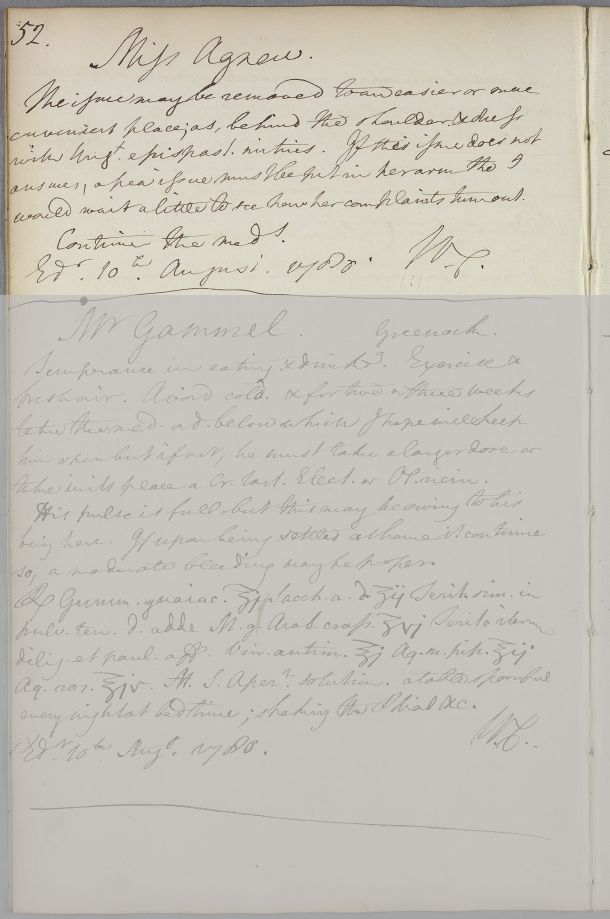 52.
Miss Agnew.
The issue may be removed to an easier or more
convenient place; as, behind the shoulder & dress
with Ungt. epispast. mitius. If this issue does not
answer, a pea issue must be put in her arm tho I
would wait a little to see how her complaints turn out.
Continue the meds.
Edr. 10th August. 1788. W.C.
Mr Gammel. Greenock.
Temperance in eating & drinkg. Exercise &
fresh air. Avoid cold. & for two or three weeks
take the med. ad. below which I hope will keep
him open but if not, he must take a larger dose or
take in its place a Cr. Tart. Elect. or Ol. ricin.
His pulse is full but this may be owing to his
being here. If upon being settled at home it continue
so, a moderate bleeding may be proper.
℞ Gumm. guaiac. ʒj Sacch. a. d. ʒij Terit. sim. in
pulv. ten. d. adde M. g. Arab. crass. ʒvj Terito iterum
dilig. et paul. aff. Vin. antim. ℥j Aq. n. pip. ℥ij
Aq. ros. ℥jv. M. S. Apert. solution. a tablespoonful
every night at bedtime; shaking the Phial &c.
Edr. 10th Augt. 1788. W.C.